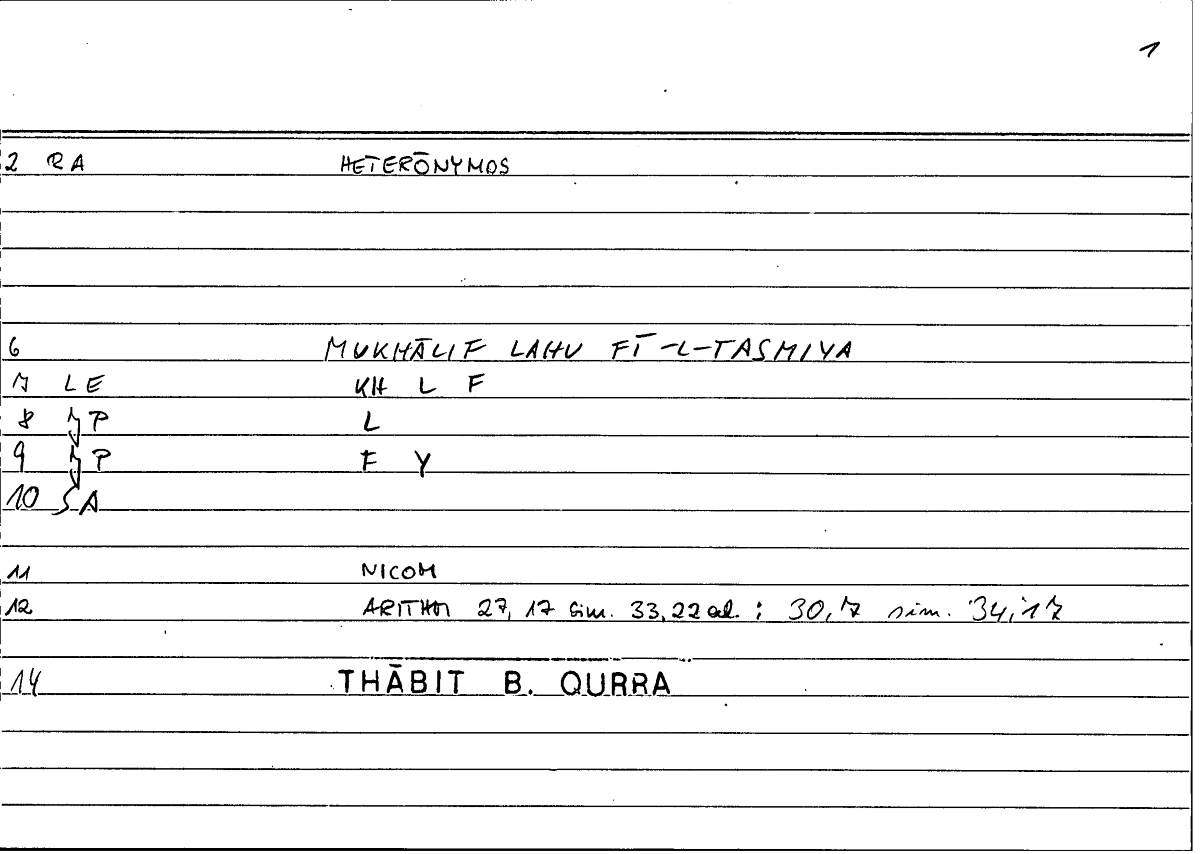 1
2 RA HETERŌNYMOS
6 MUKHĀLIF LAHU FĪ-L-TASMIYA
7 LE KH L F
8 P L
9 P F Y
10 SA
11 NICOM
12 ARITHM 27, 17 sim. 33,22 al. ; 30,17 sim. 34,17
14 THĀBIT B. QURRA